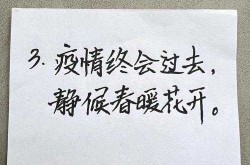 3. 疫情终会过去，
静候春暖花开。